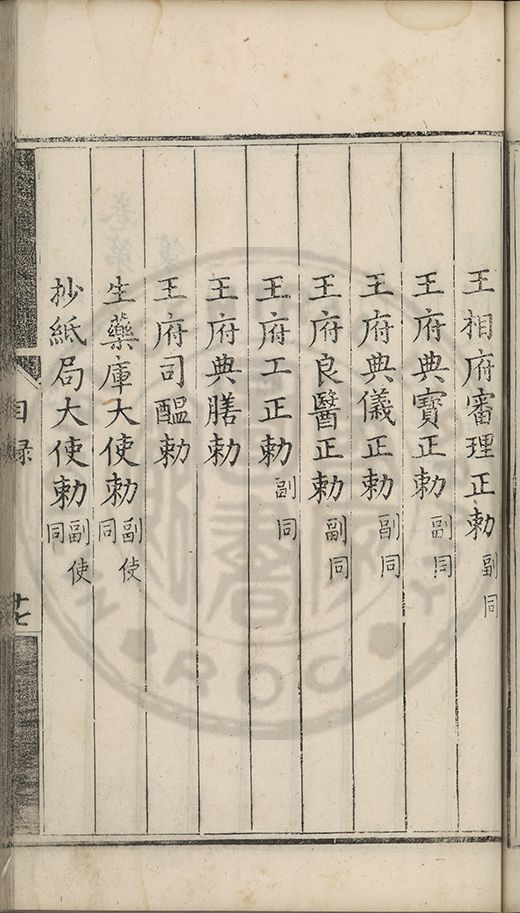 王相府審理正勅副同
王府典寶正勅副同
王府典儀正勅副同
王府良醫正勅副同
王府工正勅副同
王府典膳勅
王府司醞勅
生藥庫大使勅副使同
抄紙局大使勅副使同
目録
十七